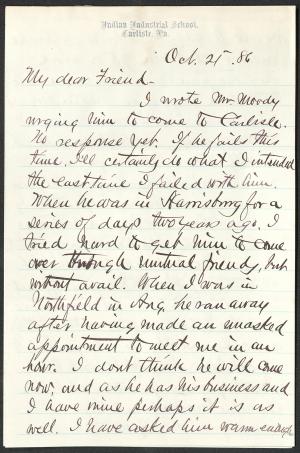 Indian Industrial School,
Carlisle, Pa.
Oct. 25 '86
My dear Friend-
I wrote Mr Moody
urging him to come to Carlisle.
No response yet. If he fails this
time, I'll certainly do what I intended
the last time I failed with him.
When he was in Harrisburg for a
series of days two years ago, I
tried hard to get him to come
over through mutual friends, but
without avail. When I was in
Northfield in Aug. he ran away
after having made an unasked
appointment to meet me in an
hour. I dont think he will come
now, and as he has his business and
I have mine perhaps it is as
well. I have asked him warm enough